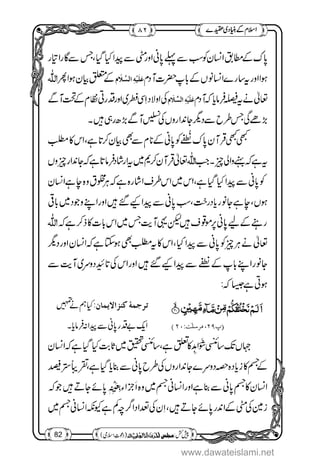 اسلام کے بنیادی عقیدے
۸۲
پاک کے مطابق انسان کو سب سے پہلے پانی اور مٹی سے پیدا کیا گیا، جس سے گارا تیار
ہوا اور یہ سارے انسانوں کے باپ حضرت آدم عَلَیْہِ السَّلَام کے متعلق بیان ہوا پھر اللّٰہ
تعالٰی نے یہ فیصلہ فرمایا کہ آدم عَلَیْہِ السَّلَام کی اولاد اسی فطری اور قدرتی نظام کے تحت آگے
بڑھے گی جس طرح سے دیگر جانداروں کی نسلیں آگے بڑھ رہی ہیں۔
کبھی کبھی قرآن پاک نطفے کو پانی کے نام سے بھی بیان کرتا ہے، اس کا مطلب
یہ ہے کہ بہنے والی چیز۔ جب اللّٰہ تعالٰی قرآن کریم میں یہ ارشاد فرماتا ہے کہ جاندار چیزوں
کو پانی سے پیدا کیا گیا ہے، اس میں اس طرف اشارہ ہے کہ ہر مخلوق وہ چاہے انسان
ہوں، چاہے جانور یا درخت، سب پانی سے پیدا کیے گئے ہیں اور اپنے وجود میں باقی
رہنے کے لیے پانی پر موقوف ہیں لیکن یہی آیت جس میں اس بات کا ذکر ہے کہ اللّٰہ
تعالٰی نے ہر چیز کو پانی سے پیدا کیا، اس کا یہ مطلب بھی ہوسکتا ہے کہ انسان اور دیگر
جانور اپنے باپ کے نطفے سے پیدا کیے گئے ہیں اور اس کی تائید دوسری آیت سے
ہوتی ہے جیسا کہ:
اَلَمْ نَخْلُقْكُّمْ مِّنْ مَّآءٍ مَّهِیْنٍۙ
ترجمۂ کنز الایمان: کیا ہم نے تمہیں
(پ۲۹، مرسلت: ۲۰)
ایک بے قدر پانی سے پیدا نہ فرمایا۔
جہاں تک سائنسی شواہد کا تعلق ہے، سائنسی تحقیق میں ثابت کیا گیا ہے کہ انسان
کے جسم کا زیادہ حصہ دوسرے جانداروں کی طرح پانی سے بنا ہے، تقریباً ستر فیصد
انسان کا جسم پانی سے بنا ہے اور انسانی جسم میں وہ اَجزاء بعینہٖ پائے جاتے ہیں جو کہ
زمین کی مٹی کے اندر پائے جاتے ہیں، ان کی تعداد اگرچہ کم ہے کیونکہ انسانی جسم میں
82
www.dawateislami.net